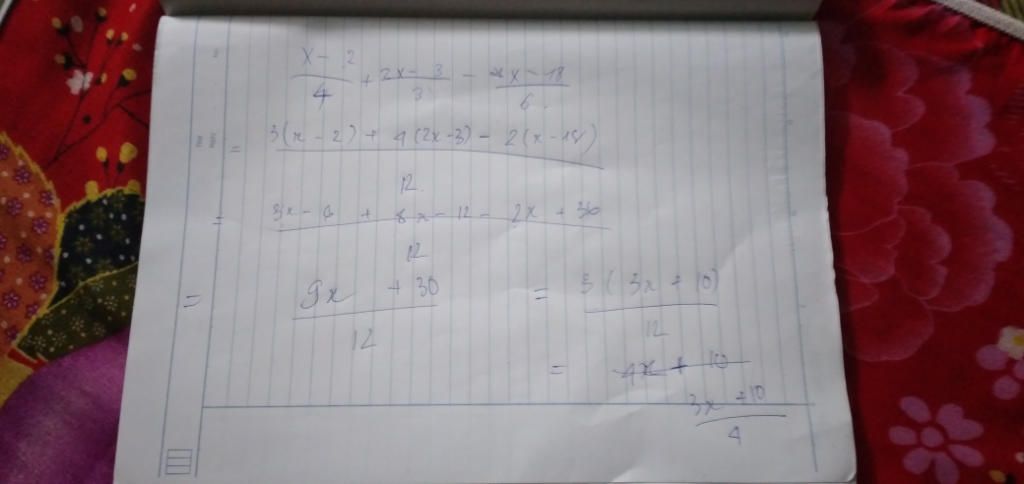 x - 2 / 4 + 2x - 3 / 3 - x - 18 / 6
= 3(x - 2) + 4(2x-3) - 2(x-18) / 12
= 3x - 6 + 8x - 12 - 2x + 36 / 12
= 9x + 30 / 12 = 3(3x + 10) / 12
= 4x + 10
3x + 10 / 4